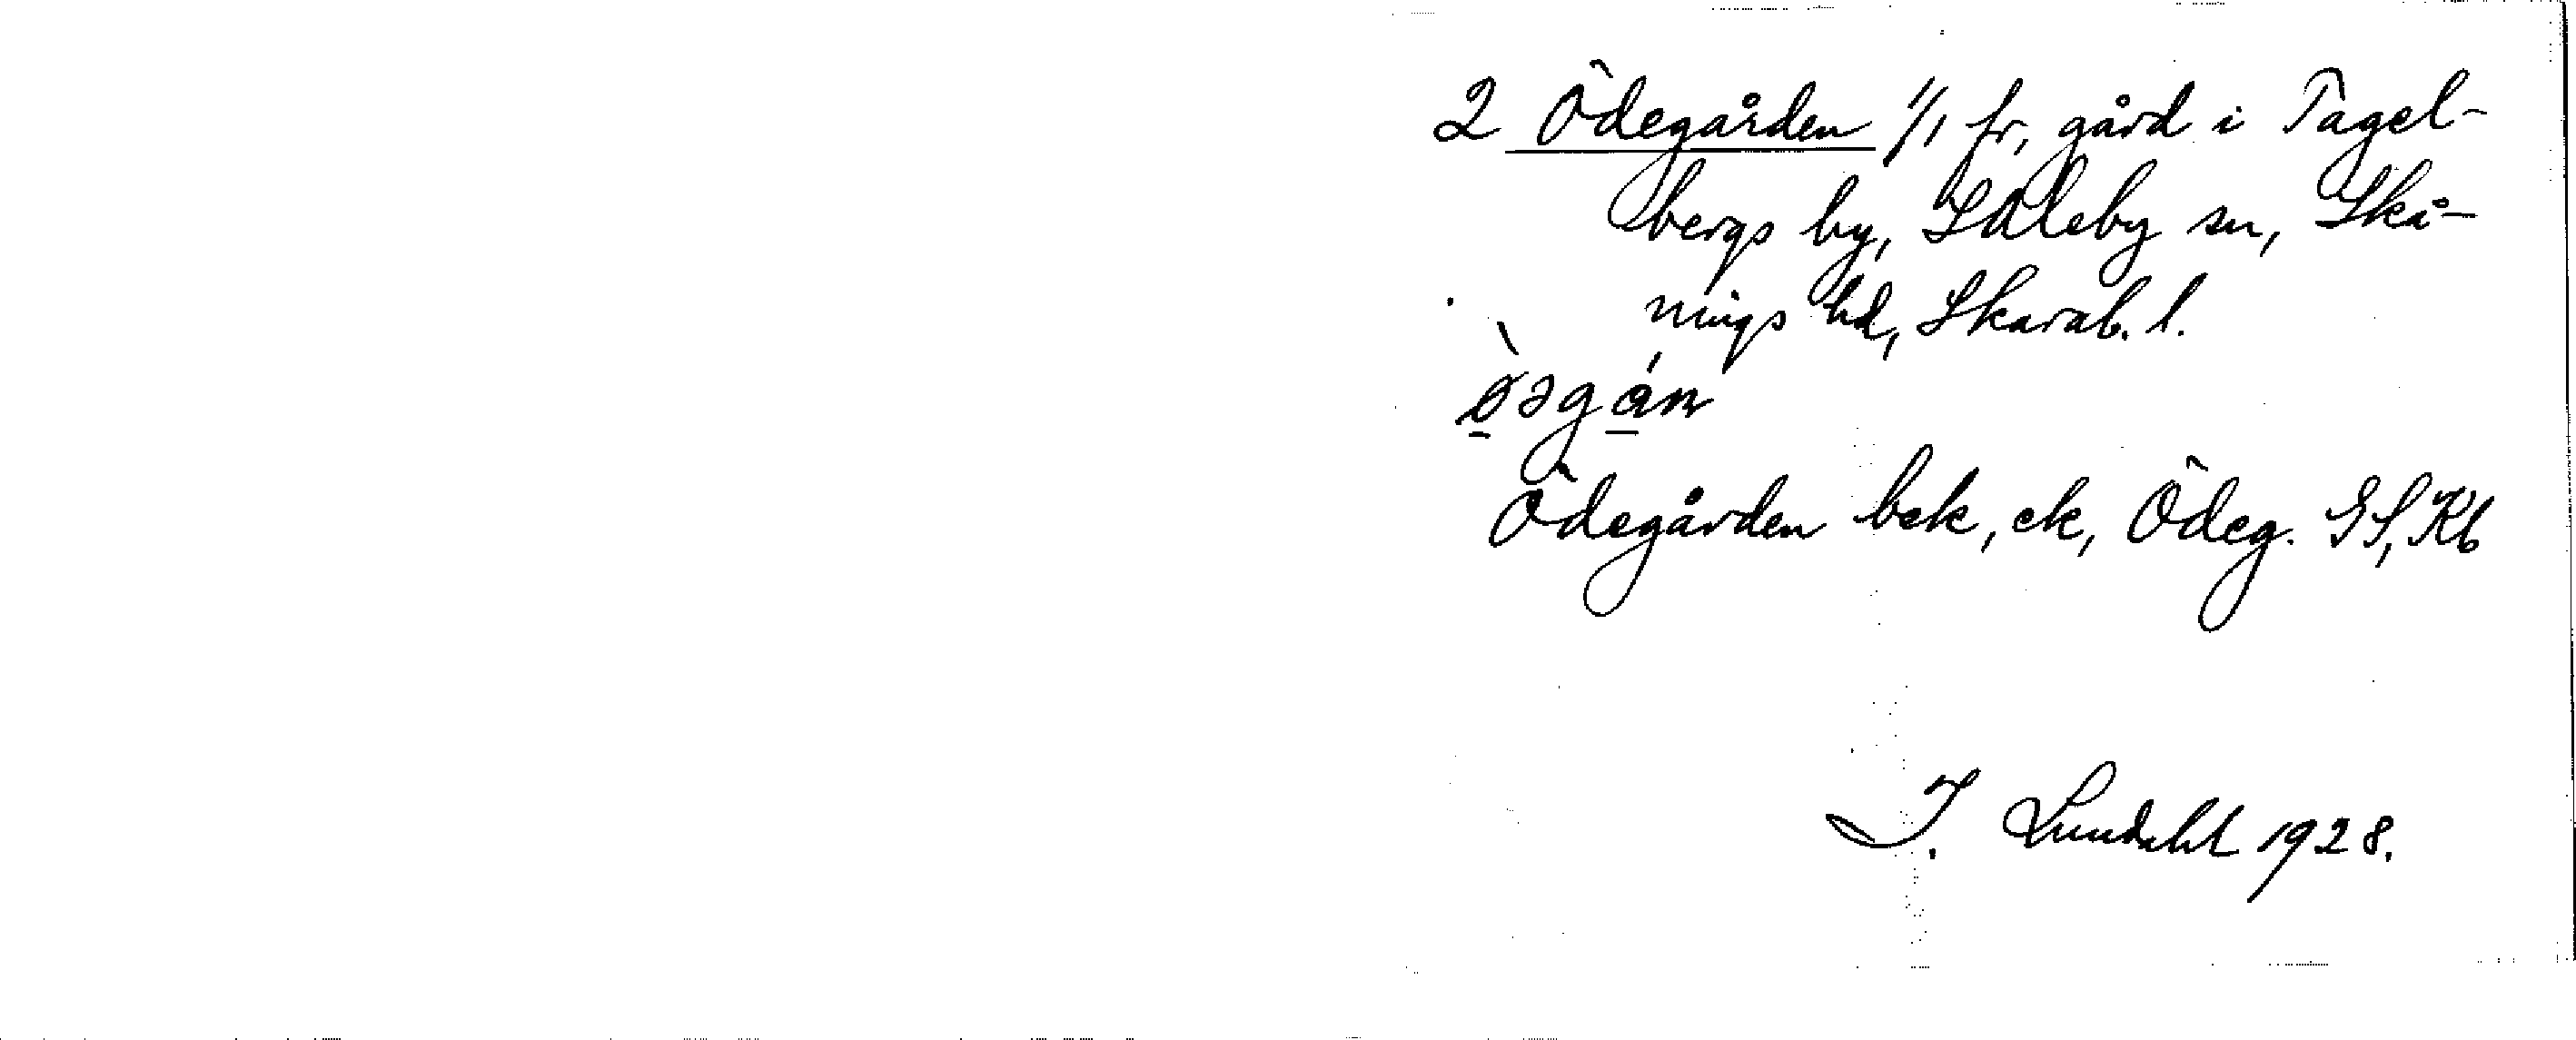 2 Ödegården 1/1 fr, gård i Tagel-
bergs by, Saleby sn, Skå-
nings hd, Skarab. l.
Ödegården bek, ek, Ödeg. GS, Kb
I. Lundahl 1928.